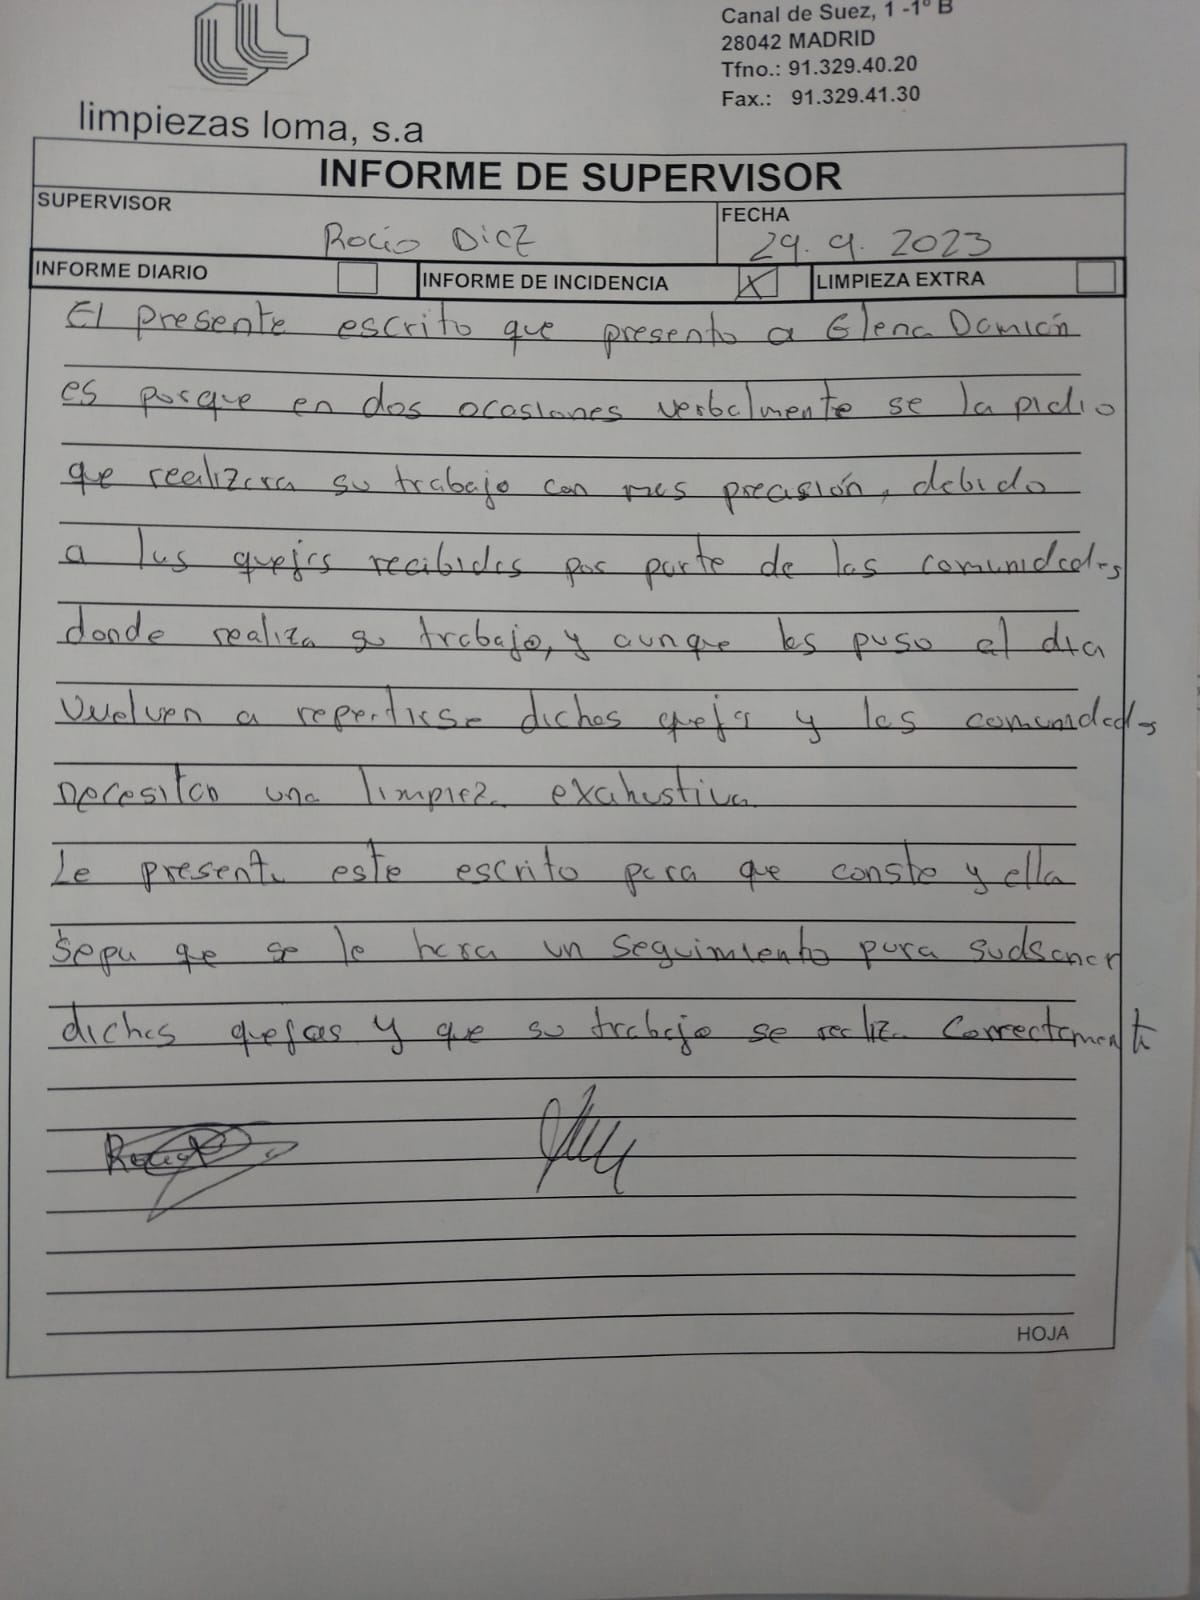 Canal de Suez, 1 -1º B
28042 MADRID
Tfno.: 91.329.40.20
Fax.: 91.329.41.30
limpiezas loma, s.a
INFORME DE SUPERVISOR
SUPERVISOR
Rocio Diez
FECHA
29. 9. 2023
INFORME DIARIO
INFORME DE INCIDENCIA X
LIMPIEZA EXTRA
El presente escrito que presento a Elena Damián
es porque en dos ocasiones verbalmente se la pidio
que realizara su trabajo con mas precisión, debido
a las quejas recibidas por parte de las comunidades
donde realiza su trabajo, y aunque les puso al dia
Vuelven a repertirse dichas quejas y las comunidades
necesitan una limpieza exahustiva.
Le presento este escrito para que conste y ella
sepa que se le hara un seguimiento para sudsanar
dichas quejas y que su trabajo se realiza correctamente
HOJA